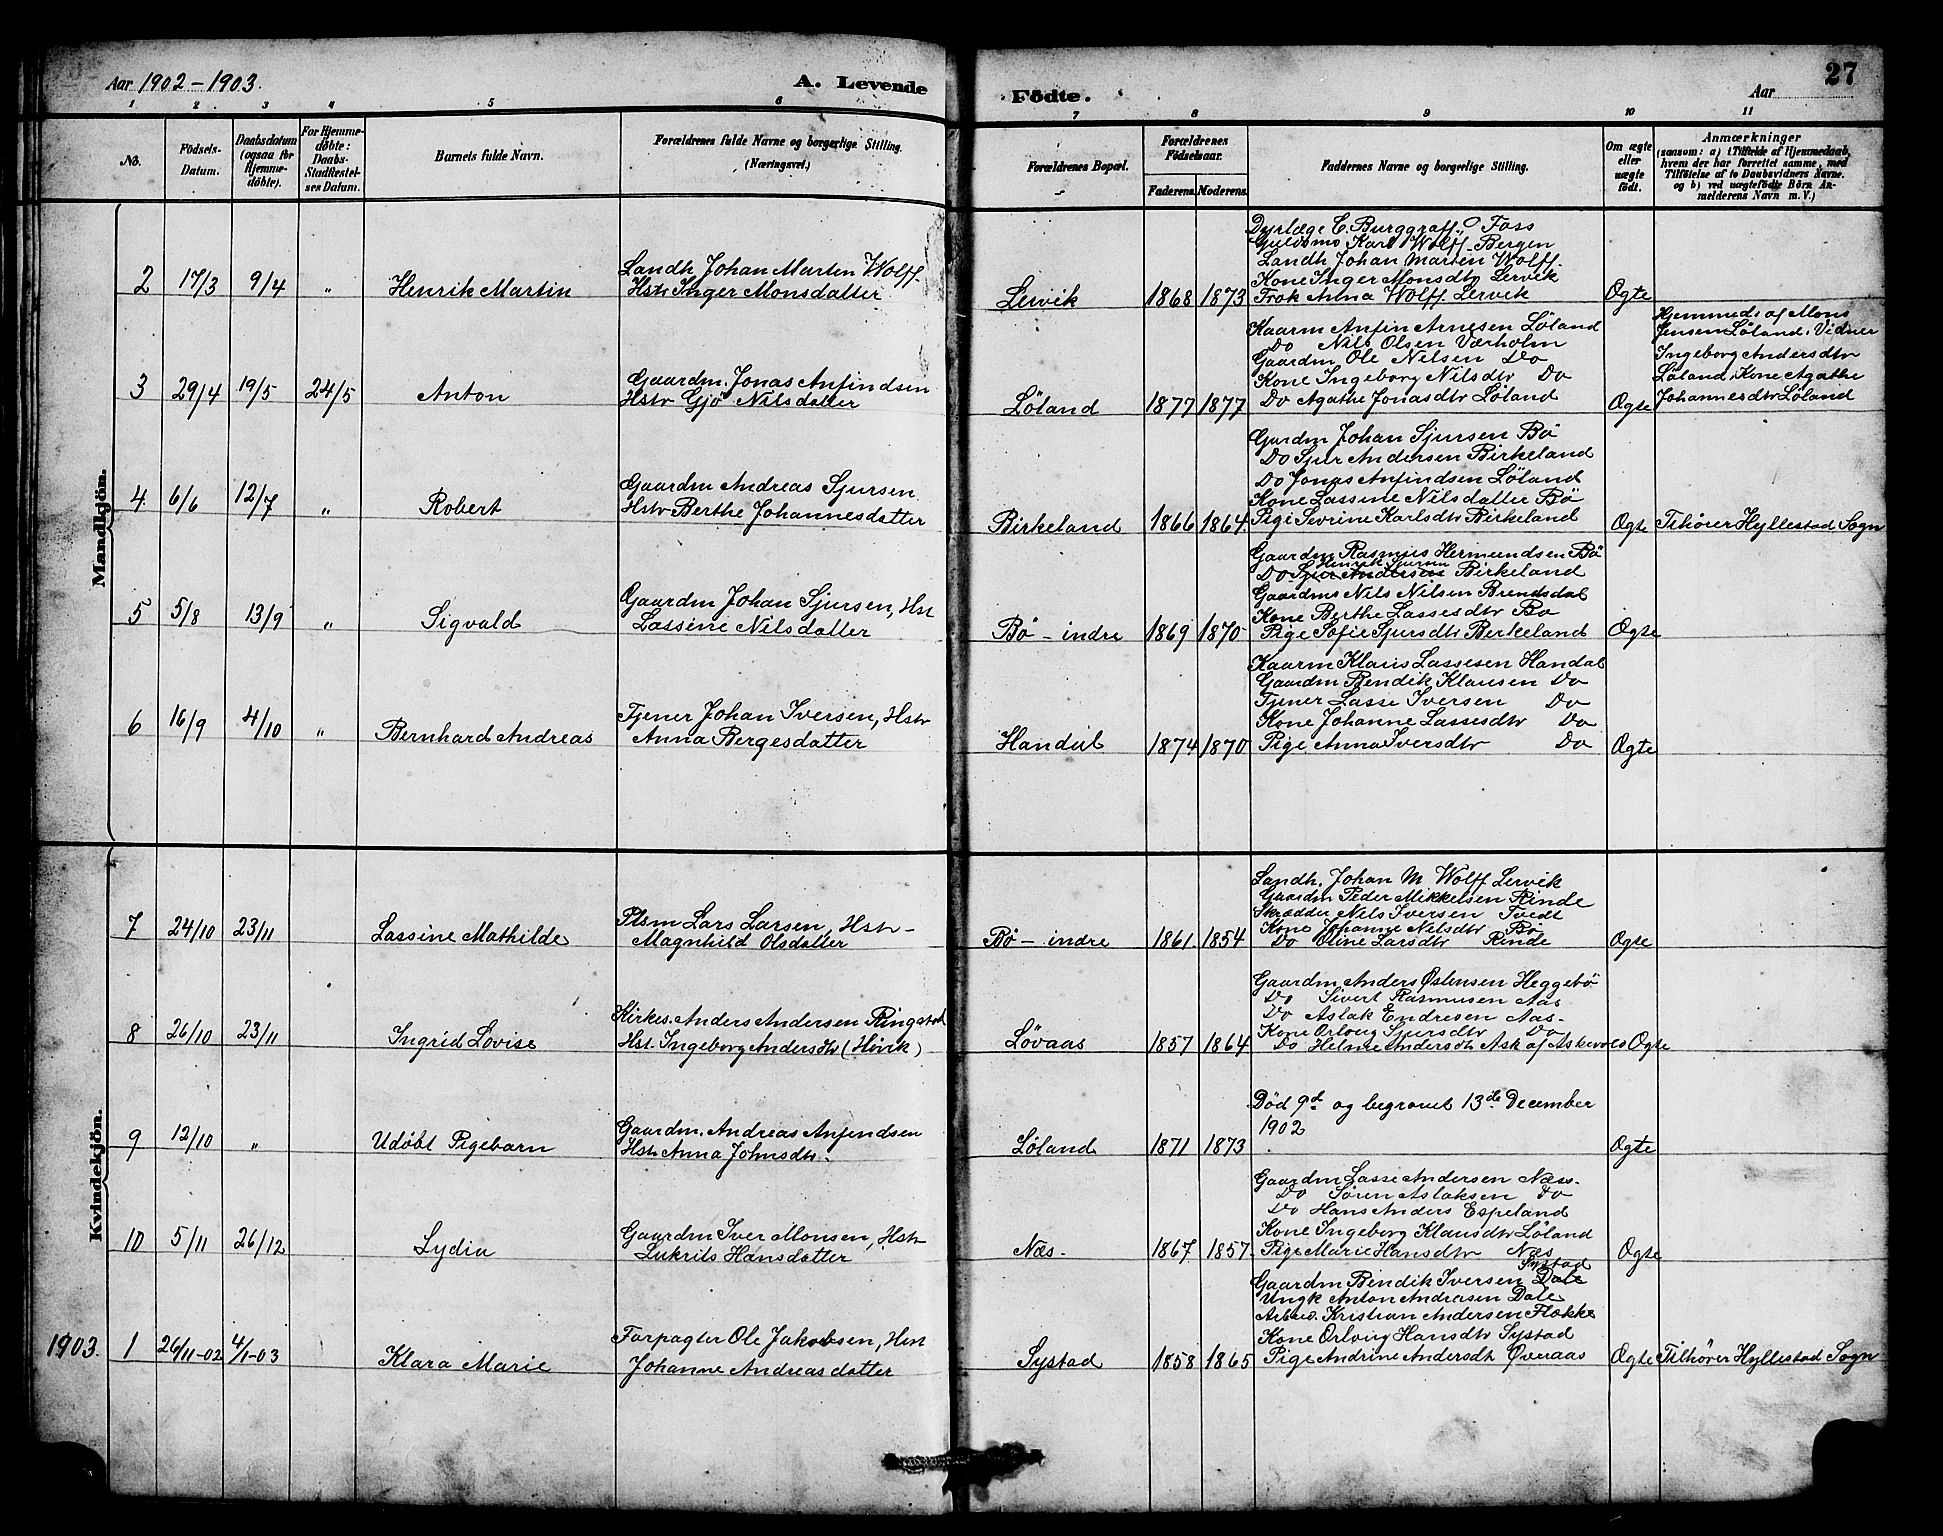 Aar 1902-1903.
A. Levende
Födte.
Aar
27
1 2. 3 4 5 6 7 8 9 10 11
No.
Födsels-
Datum.
Daabsdatum
(ogsaa for
Hjemme-
döbte).
For Hjemme-
döbte:
Daabs-
Stadfæstel-
ses Datum.
Barnets fulde Navn.
Forældrenes fulde Navne og borgerlige Stilling.
(Næringsvei.)
Forældrenes Bopæl.
Forældrenes
Födselsaar.
Faderens. Moderens.
Faddernes Navne og borgerlige Stilling.
Om ægte
eller
uægte
födt.
Anmærkninger
(saasom: a) i Tilfælde af Hjemmedaab,
hvem der har forrettet samme, med
Tilföielse af to Daabsvidners Navne.
og b) ved uægtefödte Börn An-
melderens Navn m. V.)
Mandkjön.
2 17/3 9/4 „ Henrik Martin
Landh Johan Marten Wolff
Hstr Inger Monsdatter
Lervik 1868 1873
Dyrlæge C. Burggraff, Foss
Guldsms Karl Wolff Bergen
Landh Johan Marten Wolff
Kone Inger Monsdtr Lervik
Frøk Anna Wolff Lervik
Ægte
3 29/4 19/5 24/5 Anton
Gaardm. Jonas Anfindsen
Hstr Gjø Nilsdatter
Løland 1877 1877
Kaarm Anfin Arnesen Løland
Do Nils Olsen Værholm
Gaardm Ole Nilsen Do
Kone Ingeborg Nilsdtr Do
Do Agathe Jonasdtr Løland
Ægte
Hjemmed: af Mons
Jensen Løland. Vidner
Ingeborg Andersdtr
Løland, Kone Agathe
Johannesdtr Løland
4 6/6 12/7 „ Robert
Gaardm Andreas Sjursen
Hstr Berthe Johannesdatter
Birkeland 1866 1864
Gardm Johan Sjursen Bø
Do Sjur Andersen Birkeland
Do Jonas Anfindsen Løland
Kone Lassine Nilsdatter Bø
Pige Sevrine Karlsdtr Birkeland
Ægte Tilhører Hyllestad Sogn
5 5/8 13/9 „ Sigvald
Gaardm Johan Sjursen, Hst
Lassine Nilsdatter
Bø - indre 1869 1870
Gaardm Rasmus Hermundsen Bø
Henrik Sjursen
Do Sjur Andersen Birkeland
Gaardms Nils Nilsen Brendsdal
Kone Berthe Lassesdtr Bø
Pige Sofie Sjursdtr Berkeland
Ægte
6 16/9 4/10 „ Bernhard Andreas
Tjener Johan Iversen, Hstr
Anna Bergesdatter
Handal 1874 1870
Kaarm Klaus Lassesen Handal
Gaardm Bendik Klausen Do
Tjener Lasse Iversen Do
Kone Johanne Lassesdtr Do
Pige Anna Iversdtr Do
Ægte
Kvindekjön.
7 24/10 23/11 Lassine Mathilde
Plsm Lars Larsen, Hstr -
Magnhild Olsdatter
Bø - indre 1861 1854
Landh. Johan M Wolff Lervik
Gaardm Peder Mikkelsen Rinde
Skrædder Nils Iversen Tvedt
Kone Johanne Nilsdtr Bø
Do Oline Larsdtr Rinde
Ægte
8 26/10 23/11 Ingrid Lovise
Kirkes. Anders Andersen Ringstad
Hst. Ingeborg Andersdtr (Høvik)
Løvaas 1857 1864
Gaardm Anders Østensen Heggebø
Do Sivert Rasmusen Aas
Do Aslak Endresen Aas-
Kone Orloug Sjursdtr Do
Do Helene Andersdtr Ask af Askevold
Ægte
9 12/10 „ Udøbt Pigebarn
Gaardm. Andreas Anfindsen
Hstr Anna Johnsdtr.
Løland 1871 1873
Død 9d og begravet 13de December
1902
Ægte
10 5/11 26/12 Lydia
Gaardm Iver Monsen, Hstr
Lukrits Hansdatter
Næs- 1867 1857
Gaardm Lasse Andersen Næss-
Do Søren Aslaksen Do
Do Hans Anders Espeland
Kone Ingeborg Klausdtr Løland
Pige Marie Hansdtr Næs
Ægte
1903. 1 26/11-02 4/1-03 Klara Marie
Forpagter Ole Jakobsen, Hst
Johanne Andreasdatter
Systad 1858 1865
Systad
Gaardm Bendik Iversen Dale
Ungk Anton Andrasen Dale
Arbeid. Kristian Andersen Flekke
Kone Orloug Hansdtr Systad
Pige Andrine Andersdt Øveraas
Ægte Tilhører Hyllestad Sogn